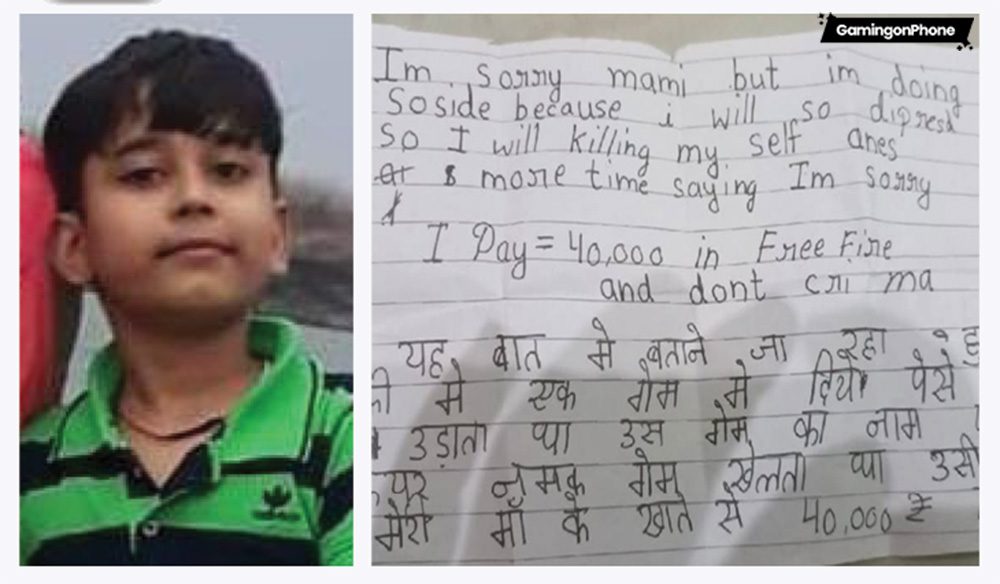 GamingonPhone
Im sorry mami but im doing
soside because i will so dipresd
so I will killing my self anes
more time saying Im sorry
I Pay = 40,000 in Free Fire
and dont cri ma
यह बात मे बताने जा रहा हु
मे एक गेम मे पैसे
उड़ाता था उस गेम का नाम
नमक गेम खेलता था उसी
मेरी माँ के खाते से 40,000 ₹